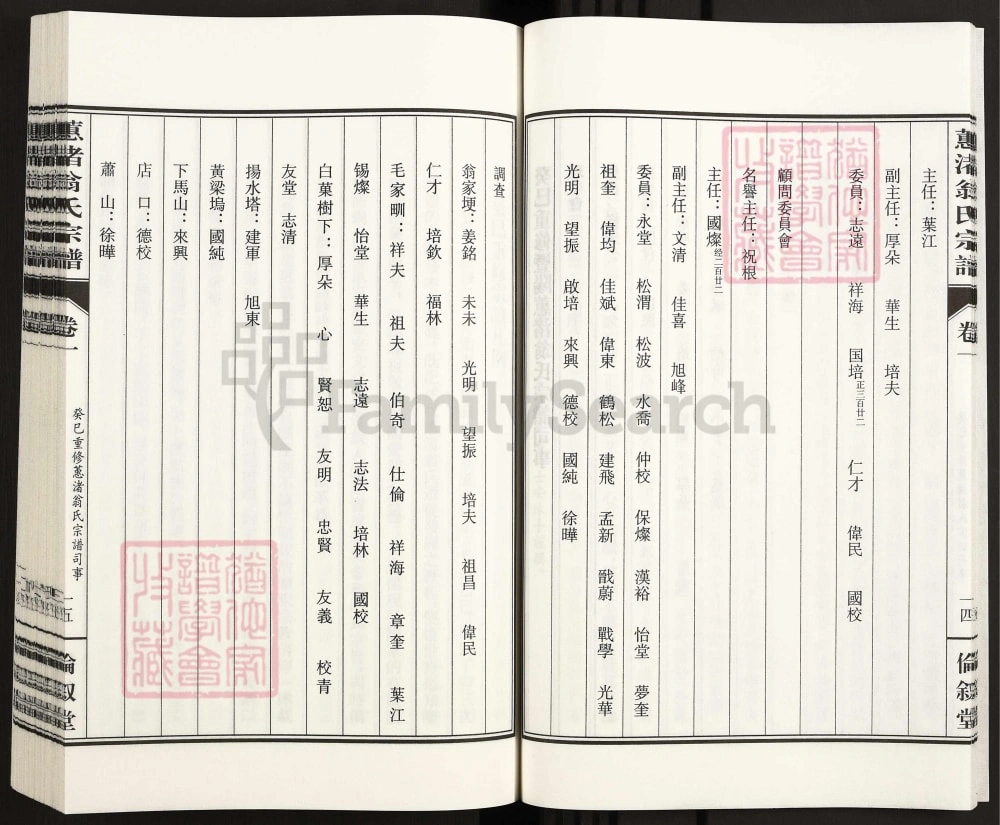 蕙渚翁氏宗譜
卷一
一四
倫敘堂
主任：葉江
副主任：厚朵 華生 培夫
委員：志遠 祥海 国培正三百廿二 仁才 偉民 國校
顧問委員會
名譽主任：祝根
主任：國燦经二百廿二
副主任：文清 佳喜 旭峰
委員：永堂 松渭 松波 水喬 仲校 保燦 漢裕 怡堂 夢奎
祖奎 偉均 佳斌 偉東 鶴松 建飛 孟新 戩蔚 戰學 光華
光明 望振 啟培 來興 德校 國純 徐曄
調查
翁家埂：姜銘 未未 光明 望振 培夫 祖昌 偉民
仁才 培欽 福林
毛家甽：祥夫 祖夫 伯奇 仕倫 祥海 章奎 葉江
锡燦 怡堂 華生 志遠 志法 培林 國校
白菓樹下：厚朵 心 賢恕 友明 忠賢 友義 校青
友堂 志清
揚水塔：建軍 旭東
黃梁塢：國純
下馬山：來興
店口：德校
蕭山：徐曄
蕙渚翁氏宗譜
卷一
癸巳重修蕙渚翁氏宗譜司事
一五
倫敘堂
猶他家譜學會收藏
猶他家譜學會收藏
FamilySearch